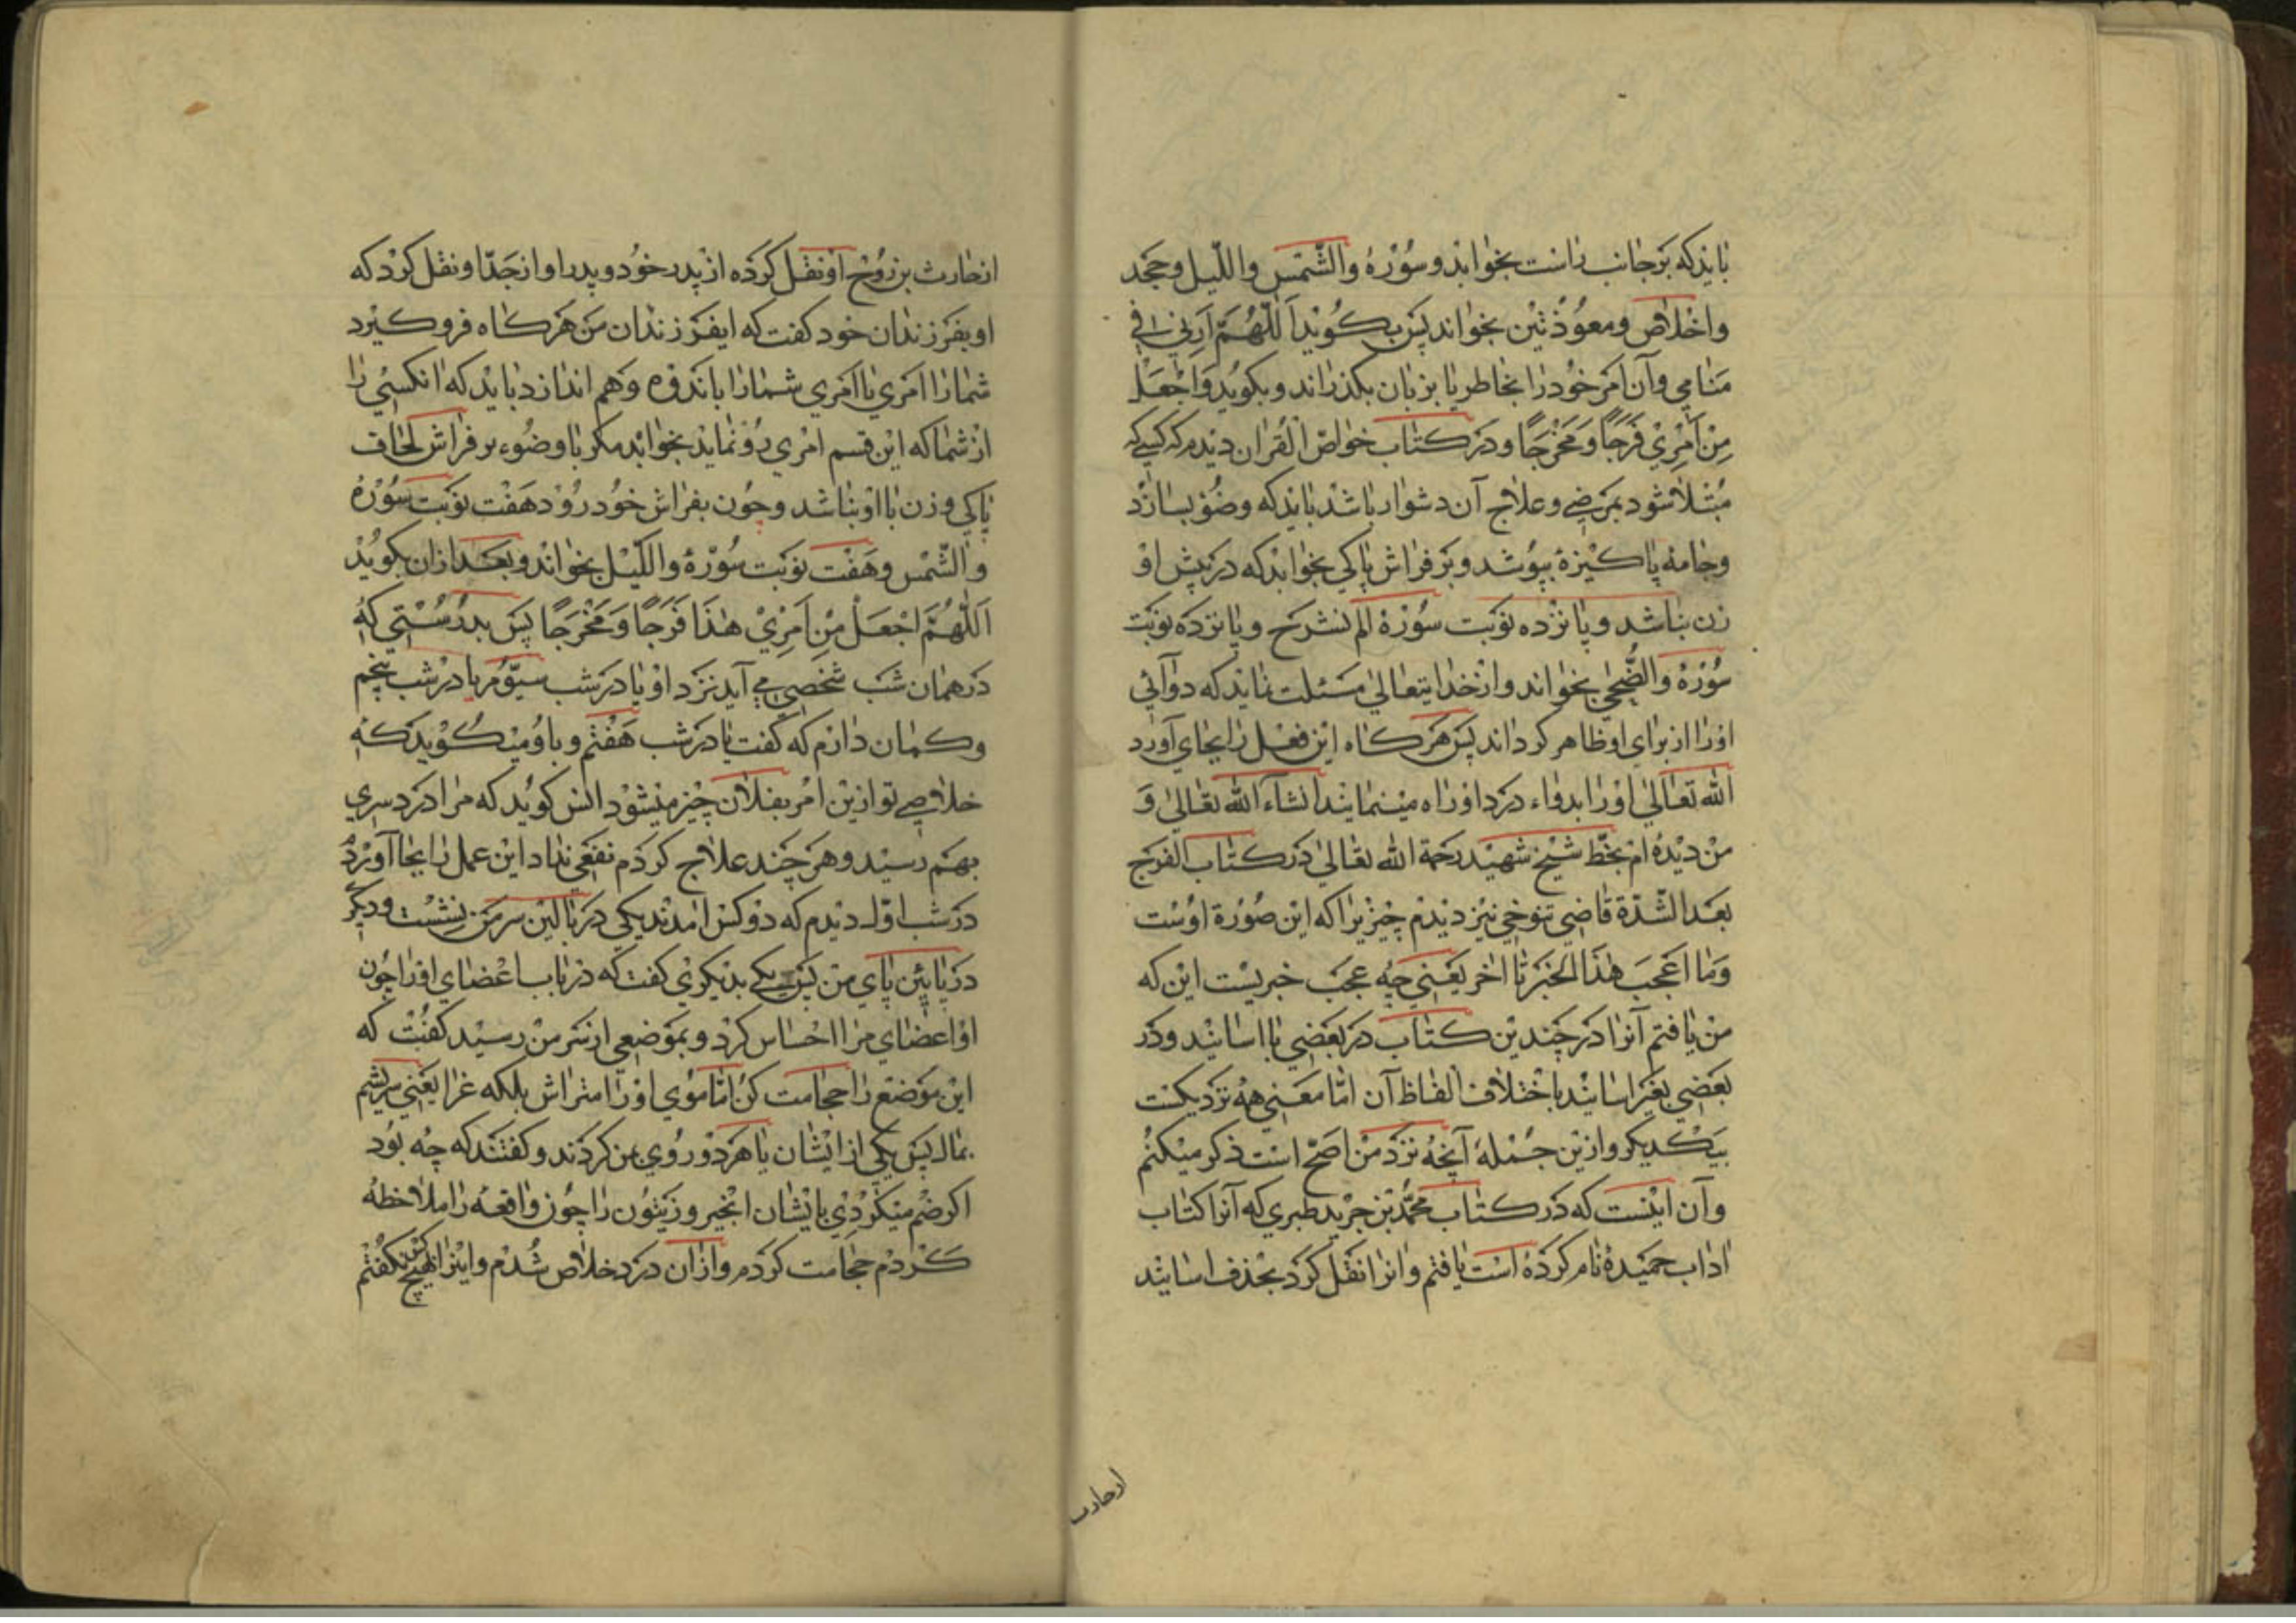 بایدکه برجانب راست بخوابد و سورهٔ والشمس واللیل وجحد
واخلاص ومعوذتین بخواند پس بکوید اللهم ارنی فی
منامی وآن امر خود را بخاطر یا بزبان بکذراند وبکوید واجعل
من امری فرجا ومخرجا ودر کتاب خواص القران دیدم که کسی که
مبتلا شود بمرضی وعلاج آن دشوار باشد باید که وضو بسازد
وجامهٔ پاکیزهٔ بپوشد وبر فراش پاکی بخوابد که در پیش او
زن نباشد وپانزده نوبت سورهٔ الم نشرح وپانزده نوبت
سورهٔ والضحی بخواند وازخدایتعالی مسئلت نماید که دوآئی
اورا از برای او ظاهر کرداند پس هرکاه این فعل را بجای آورد
الله تعالی اورا بدواء درد اوراه مینماید انشاءالله تعالی و
من دیده ام بخط شیخ شهید رحمة الله تعالی در کتاب الفرج
بعد الشدة قاضی تنوخی نیز دیدم چیزیرا که این صورة اوست
وما اعجب هذا الخبر تا اخر یعنی چه عجب خبریست این که
من یافتم آنرا در چندین کتاب در بعضی با اسانید ودر
بعضی بغیر اسانید باختلاف الفاظ آن امّا معنی همه نزدیکست
بیکدیکر وازین جملهٔ آنچه نزد من اصح است ذکر میکنم
وآن اینست که در کتاب محمد بن جریر طبری که آنرا کتاب
اداب حمیدهٔ نام کرده است یافتم وانرا نقل کرد بحذف اسانید
ازحارث
ازحارث بن روح او نقل کرده از پدر خود و پدر او ازجدّ او نقل کرد که
او بفرزندان خود کفت که ایفرزندان من هرکاه فرو کیرد
شمارا امری یا امری شمارا باندوه وهم اندازد باید که انکسی را
ازشما که این قسم امری رو نماید نخوابد مکر با وضوء بر فراش لحاف
پاکی وزن با او نباشد وچون بفراش خود رود هفت نوبت سورهٔ
والشمس وهفت نوبت سورهٔ واللیل بخواند وبعد ازان بکوید
اللهم اجعل من امری هذا فرجا ومخرجا پس بدرستی که
درهمان شب شخصی می آید نزد او یا در شب سیّوم یا درشب پنجم
وکمان دارم که کفت یا در شب هفتم وباو میکوید که
خلاصی تو ازین امر بفلان چیز میشود انس کوید که مرا درد سری
بهم رسید وهر چند علاج کردم نفعی نداد این عمل را بجا آوردم
در شب اول دیدم که دوکس امدند یکی در بالین سر من نشست ودیکر
در پایین پای من پس یکی بدیکری کفت که دریاب اعضای اورا چون
او اعضای مرا احساس کرد وبموضعی از سر من رسید کفت که
این موضع را حجامت کن امّا موی اورا متراش بلکه غرا یعنی سریشم
بمال پس یکی از ایشان یا هر دو روی بمن کردند وکفتند که چه بود
اکر ضم میکردی بایشان انجیر وزیتون را چون واقعه را ملاحظه
کردم حجامت کردم وازان درد خلاص شدم واینرا بهیچ کس نکفتم